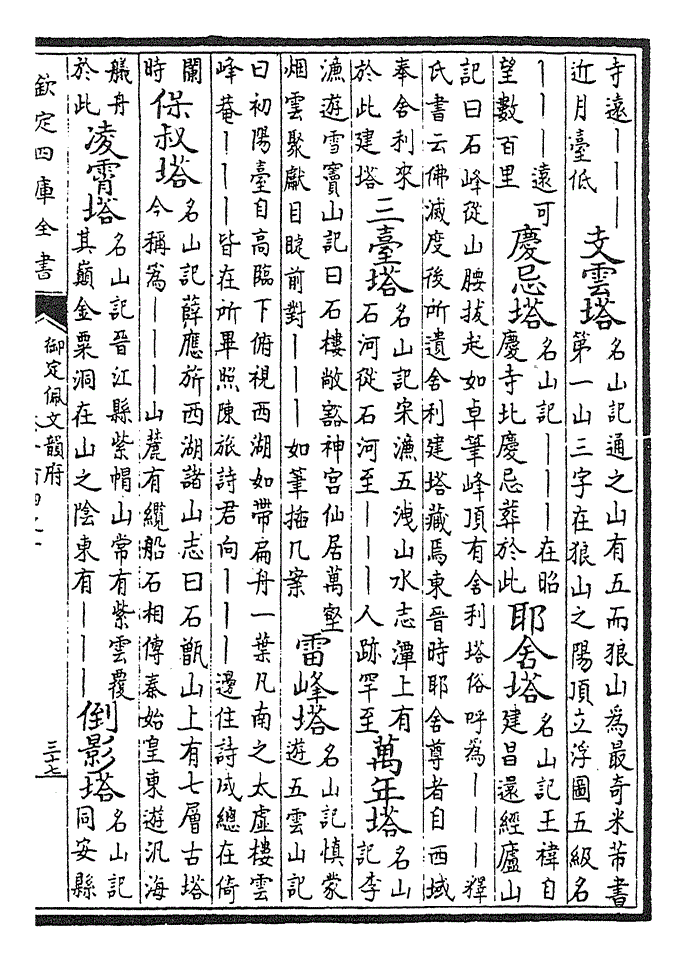 寺遠丨丨丨丨
近月臺低
支雲塔
名山記通之山有五而狼山爲最奇米芾書
第一山三字在狼山之陽頂立浮圖五級名
丨丨丨遠可
望數百里
慶忌塔
名山記丨丨丨在昭
慶寺北慶忌葬於此
耶舍塔
名山記王禕自
建昌還經廬山
記曰石峰從山腰拔起如卓筆峰頂有舍利塔俗呼為丨丨丨釋
氏書云佛滅度後所遺舍利建塔藏焉東晉時耶舍尊者自西域
奉舍利來
於此建塔
三臺塔
名山記宋濂五洩山水志潭上有
石河從石河至丨丨丨人跡罕至
萬年塔
名山
記李
漁遊雪竇山記曰石樓敞豁神宮仙居萬壑
烟雲聚獻目睫前對丨丨丨如筆插几案
雷峰塔
名山記慎蒙
遊五雲山記
曰初陽臺自高臨下俯視西湖如帶扁舟一葉凡南之太虛樓雲
峰菴丨丨丨皆在所畢照陳旅詩君向丨丨丨邊住詩成總在倚
闌
時
保叔塔
名山記薛應旂西湖諸山志曰石甑山上有七層古塔
今稱爲丨丨丨山麓有纜船石相傳秦始皇東遊汎海
艤舟
於此
凌霄塔
名山記晉江縣紫帽山常有紫雲覆
其巔金粟洞在山之陰東有丨丨丨
倒影塔
名山記
同安縣
欽定四庫全書
御定佩文韻府
三十七